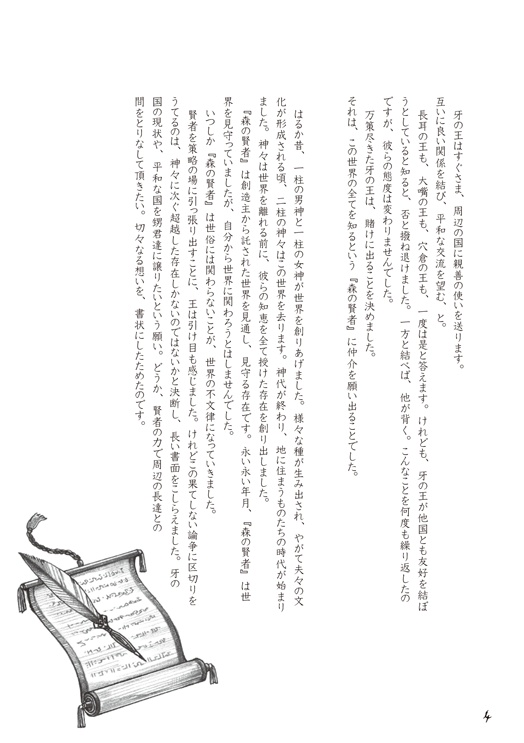 牙の王はすぐさま、周辺の国に親善の使いを送ります。
互いに良い関係を結び、平和な交流を望む、と。
長耳の王も、大嘴の王も、穴倉の王も、一度は是と答えます。けれども、牙の王が他国とも友好を結ぼ
うとしていると知ると、否と撥ね退けました。一方と結べば、他が背く。こんなことを何度も繰り返したの
ですが、彼らの態度は変わりませんでした。
万策尽きた牙の王は、賭けに出ることを決めました。
それは、この世界の全てを知るという『森の賢者』に仲介を願い出ることでした。
はるか昔、一柱の男神と一柱の女神が世界を創りあげました。様々な種が生み出され、やがて夫々の文
化が形成される頃、二柱の神々はこの世界を去ります。神代が終わり、地に住まうものたちの時代が始まり
ました。神々は世界を離れる前に、彼らの知恵を全て授けた存在を創り出しました。
『森の賢者』は創造主から託された世界を見通し、見守る存在です。永い永い年月、『森の賢者』は世
界を見守っていましたが、自分から世界に関わろうとはしませんでした。
いつしか『森の賢者』は世俗には関わらないことが、世界の不文律になっていきました。
賢者を策略の場に引っ張り出すことに、王は引け目も感じました。けれどこの果てしない論争に区切りを
うてるのは、神々に次ぐ超越した存在しかないのではないかと決断し、長い書面をこしらえました。牙の
国の現状や、平和な国を甥君達に譲りたいという願い。どうか、賢者の力で周辺の長達との
間をとりなして頂きたい。切々なる想いを、書状にしたためたのです。
4